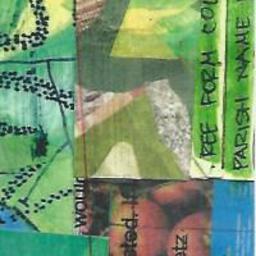 FEE FORM COU
PARISH NAME
would
sted. I
etz.